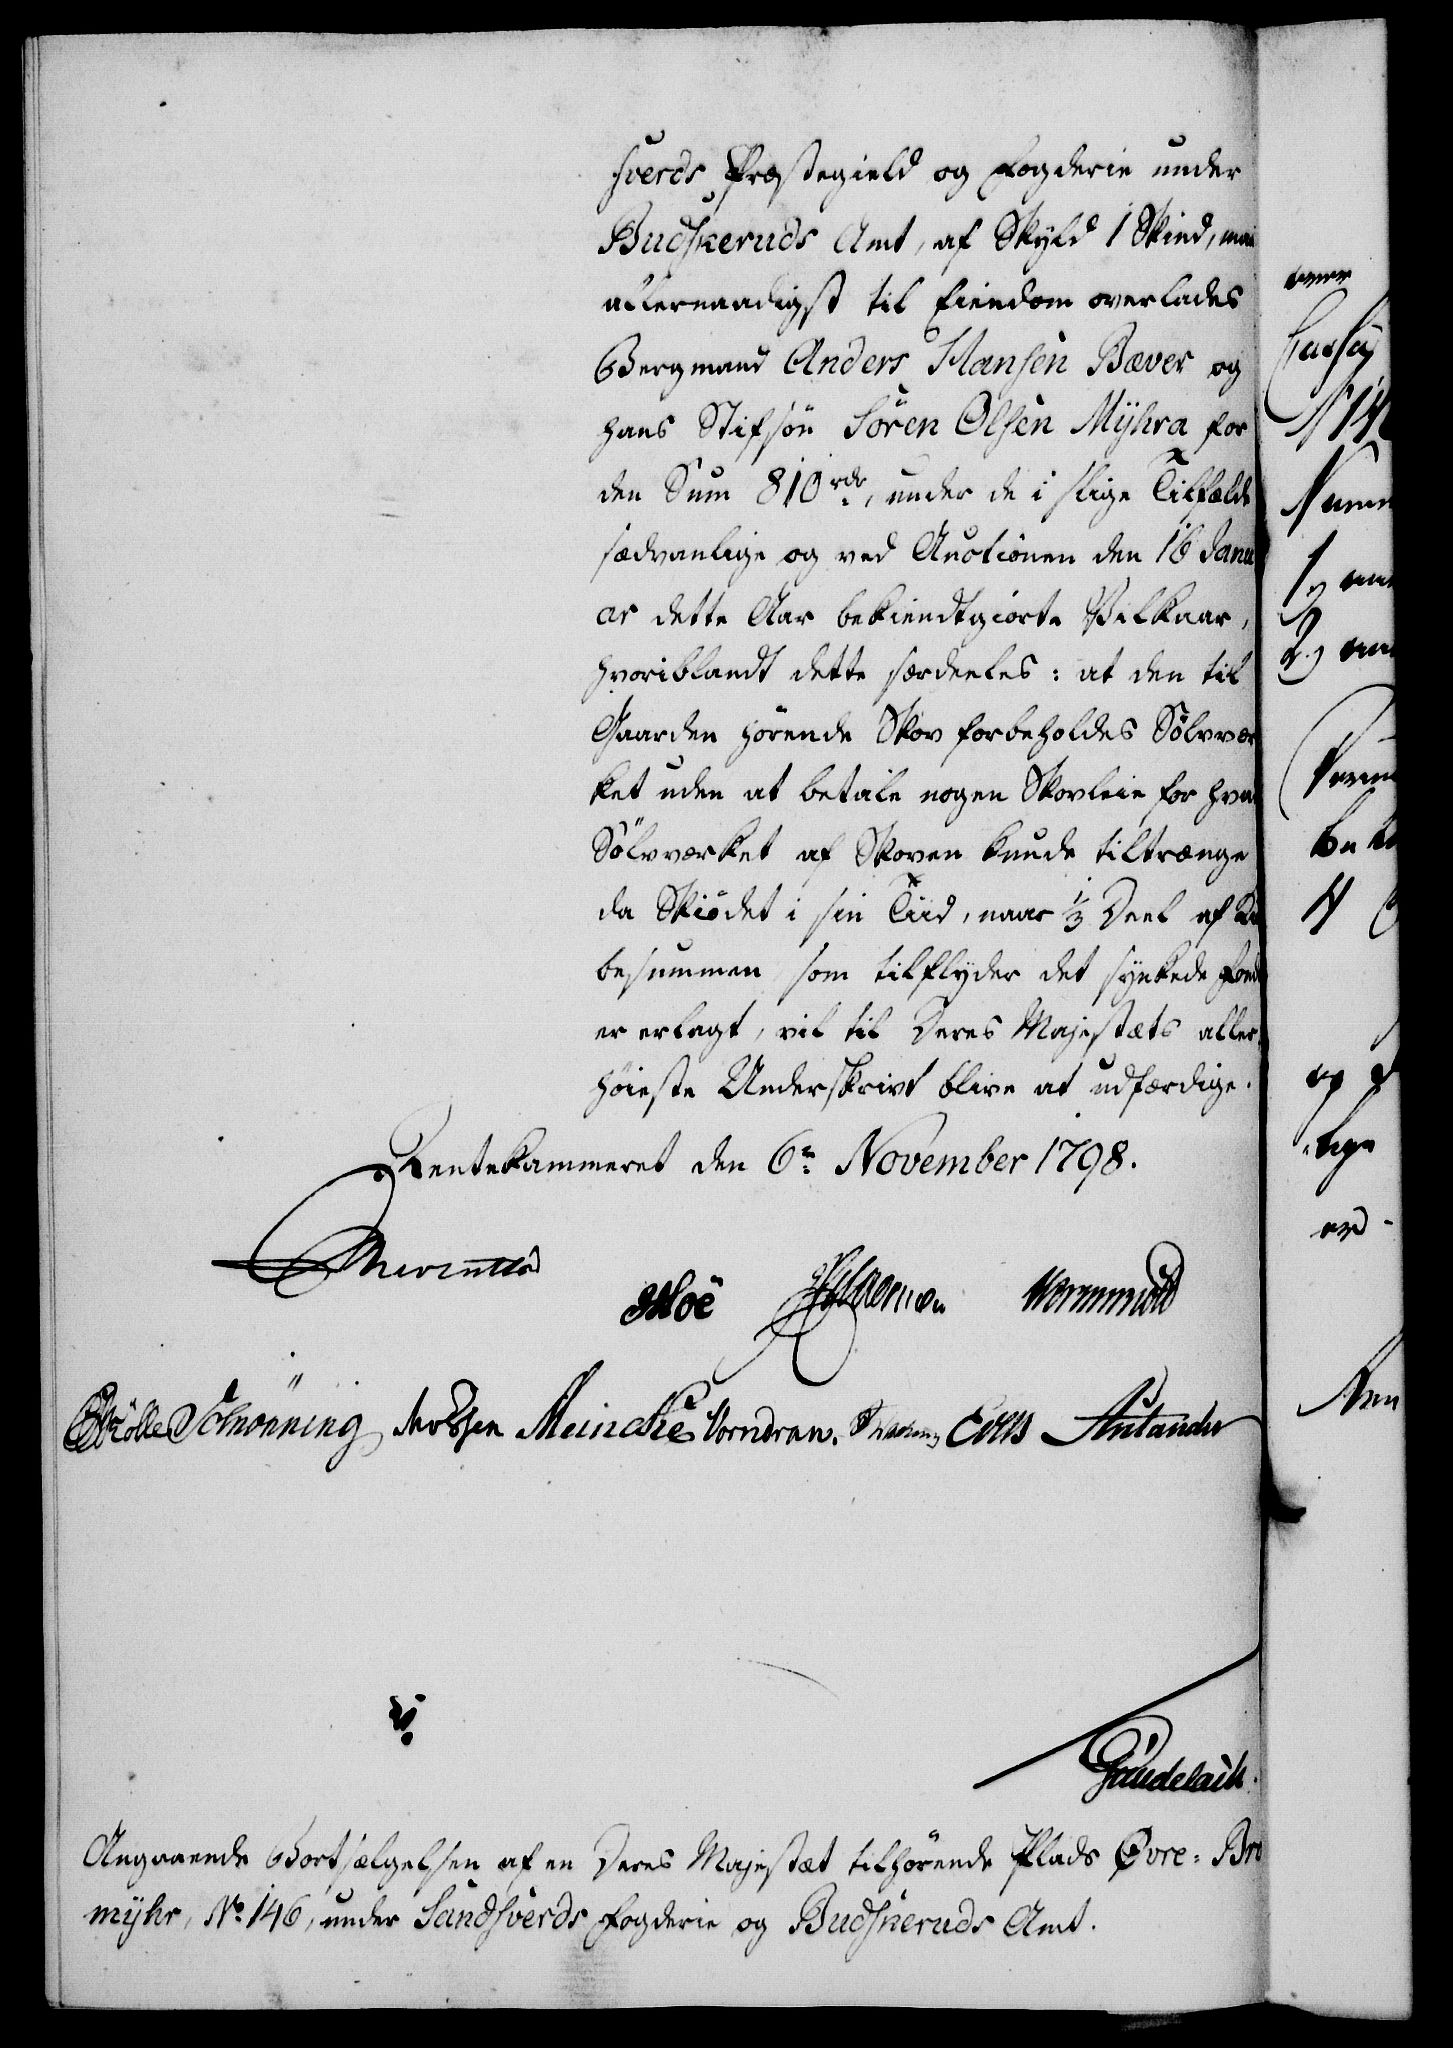 sverds Præstegield og Fogderie under
Budskeruds Amt, af Skyld 1 Skind, maa
allernaadigst til Eiendom overlades
Bergmand Anders Hansen Bæver og
hans Stifsön Sören Olsen Myhra for
den Sum 810 rdr, under de i slige Tilfælde
sædvanlige og ved Auctionen den 16 Janu
ar dette Aar bekiendtgiorte Vilkaar,
hvoriblandt dette særdeeles: at den til
Gaarden hörende Skov forbeholdes Sölvvær
ket uden at betale nogen Skovleie for hvad
Sölvværket af Skoven kunde tiltrænge
da Skiödet i sin Tiid, naar 1/3 Deel af Kiö
besummen som tilflyder det synkede Fond
er erlagt, vil til Deres Majestæts aller,
höieste Underskrivt blive at udfærdige.
Rentekammeret den 6te November 1798.
Moe Wormskiold
Schönning Meincke Vorndran.
Angaaende Bortsælgelsen af en Deres Majestæt tilhörende Plads Øvre-Bre
myhr, No. 146, under Sandsverds Fogderie og Budskeruds Amt.